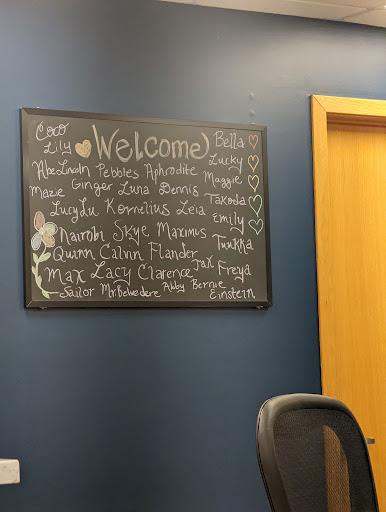 Coco Welcome Bella
Lily Lucky
Abe Lincoln Pebbles Aphrodite Maggie
Mazie Ginger Luna Dennis Takoda
LucyLu Kornelius Leia Emily
Nairobi Skye Maximus Tuukka
Quinn Calvin Flander
Max Lacy Clarence Jax Freya
Sailor Mr. Belvedere Abby Bernie Einstein